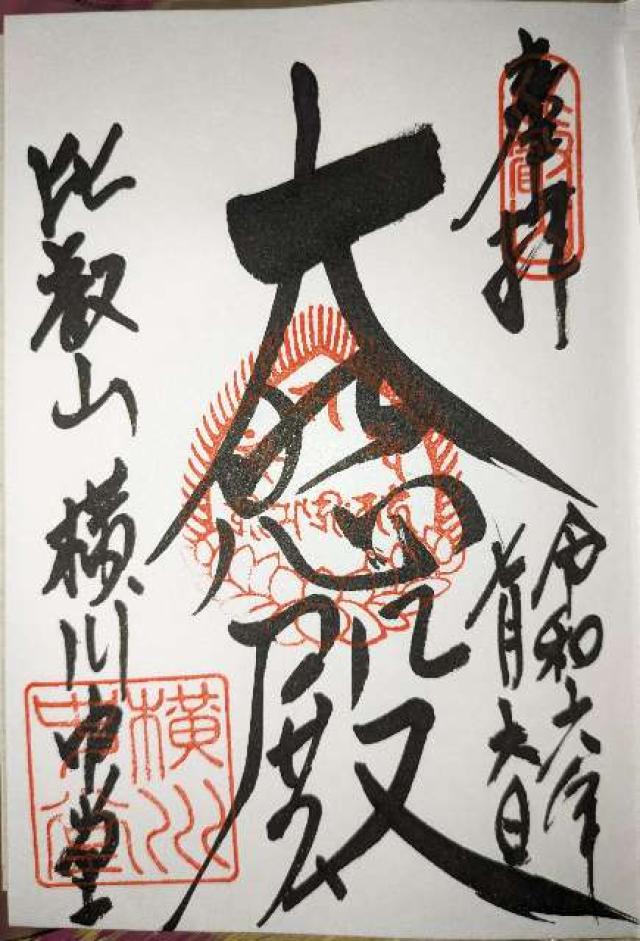 奉拝
令和六年
七月六日
大悲殿
比叡山 横川中堂
横川
中堂